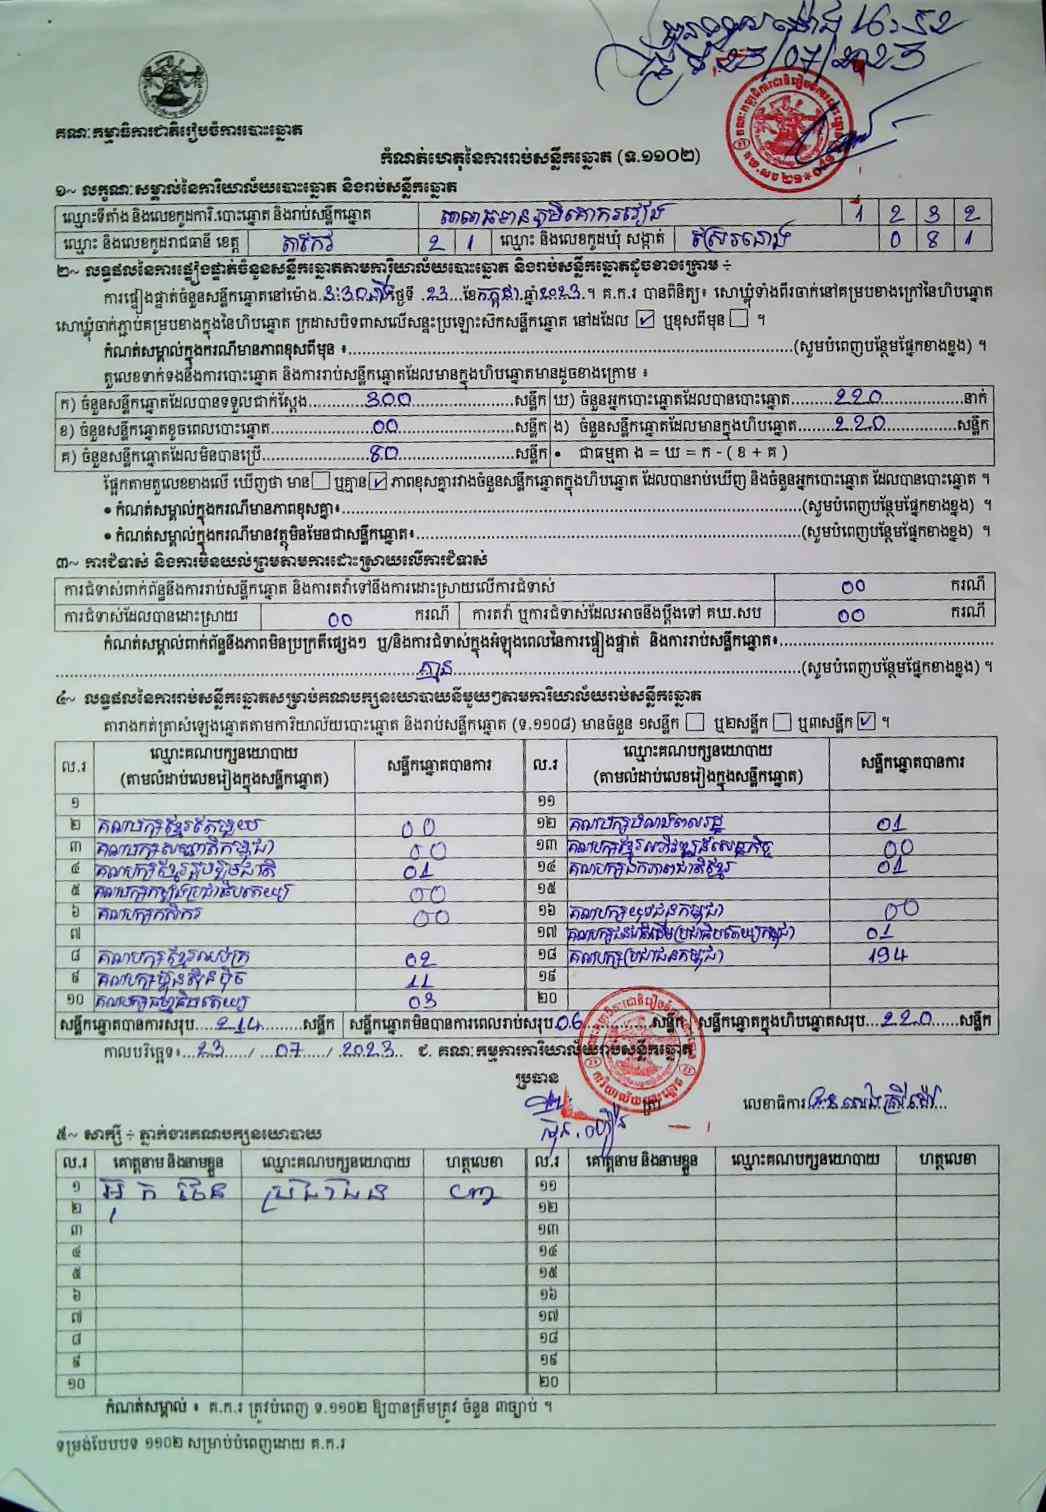 ម៉ោង 16:52
ថ្ងៃទី 23/07/2023
គណៈកម្មាធិការជាតិរៀបចំការបោះឆ្នោត
កំណត់ហេតុនៃការរាប់សន្លឹកឆ្នោត (ទ.១១០២)
១~ លក្ខណៈសម្គាល់នៃការិយាល័យបោះឆ្នោត និងរាប់សន្លឹកឆ្នោត
ឈ្មោះទីតាំង និងលេខកូដការិ.បោះឆ្នោត និងរាប់សន្លឹកឆ្នោត 1 2 3 2
ឈ្មោះ និងលេខកូដរាជធានី ខេត្ត តាកែវ 2 1 ឈ្មោះ និងលេខកូដឃុំ សង្កាត់ ស្រែរនោង 0 8 1
២~ លទ្ធផលនៃការផ្ទៀងផ្ទាត់ចំនួនសន្លឹកឆ្នោតតាមការិយាល័យបោះឆ្នោត និងរាប់សន្លឹកឆ្នោតដូចខាងក្រោម ÷
ការផ្ទៀងផ្ទាត់ចំនួនសន្លឹកឆ្នោតនៅម៉ោង 3:30 ថ្ងៃទី 23 ខែ កក្កដា ឆ្នាំ 2023 ។ គ.ក.រ បានពិនិត្យ៖ សោឃ្លុំទាំងពីរចាក់នៅគម្របខាងក្រៅនៃហិបឆ្នោត
សោឃ្លុំចាក់ភ្ជាប់គម្របខាងក្នុងនៃហិបឆ្នោត ក្រដាសបិទពាសលើសន្ទះប្រឡោះសិកសន្លឹកឆ្នោត នៅដដែល ☑ ឬខុសពីមុន ☐ ។
កំណត់សម្គាល់ក្នុងករណីមានភាពខុសពីមុន ៖ (សូមបំពេញបន្ថែមផ្នែកខាងខ្នង) ។
តួលេខទាក់ទងនឹងការបោះឆ្នោត និងការរាប់សន្លឹកឆ្នោតដែលមានក្នុងហិបឆ្នោតមានដូចខាងក្រោម ៖
ក) ចំនួនសន្លឹកឆ្នោតដែលបានទទួលជាក់ស្តែង 300 សន្លឹក ឃ) ចំនួនអ្នកបោះឆ្នោតដែលបានបោះឆ្នោត 220 នាក់
ខ) ចំនួនសន្លឹកឆ្នោតខូចពេលបោះឆ្នោត 00 សន្លឹក ង) ចំនួនសន្លឹកឆ្នោតដែលមានក្នុងហិបឆ្នោត 220 សន្លឹក
គ) ចំនួនសន្លឹកឆ្នោតដែលមិនបានប្រើ 80 សន្លឹក • ជាធម្មតា ង = ឃ = ក - ( ខ + គ )
ផ្អែកតាមតួលេខខាងលើ ឃើញថា មាន ☐ ឬគ្មាន ☑ ភាពខុសគ្នារវាងចំនួនសន្លឹកឆ្នោតក្នុងហិបឆ្នោត ដែលបានរាប់ឃើញ និងចំនួនអ្នកបោះឆ្នោត ដែលបានបោះឆ្នោត ។
• កំណត់សម្គាល់ក្នុងករណីមានភាពខុសគ្នា៖ (សូមបំពេញបន្ថែមផ្នែកខាងខ្នង) ។
• កំណត់សម្គាល់ក្នុងករណីមានវត្ថុមិនមែនជាសន្លឹកឆ្នោត៖ (សូមបំពេញបន្ថែមផ្នែកខាងខ្នង) ។
៣~ ការជំទាស់ និងការមិនយល់ព្រមតាមការដោះស្រាយលើការជំទាស់
ការជំទាស់ពាក់ព័ន្ធនឹងការរាប់សន្លឹកឆ្នោត និងការតវ៉ាទៅនឹងការដោះស្រាយលើការជំទាស់ 00 ករណី
ការជំទាស់ដែលបានដោះស្រាយ 00 ករណី ការតវ៉ា ឬការជំទាស់ដែលអាចនឹងប្តឹងទៅ គឃ.សប 00 ករណី
កំណត់សម្គាល់ពាក់ព័ន្ធនឹងភាពមិនប្រក្រតីផ្សេងៗ ឬ/និងការជំទាស់ក្នុងអំឡុងពេលនៃការផ្ទៀងផ្ទាត់ និងការរាប់សន្លឹកឆ្នោត៖
គ្មាន (សូមបំពេញបន្ថែមផ្នែកខាងខ្នង) ។
៤~ លទ្ធផលនៃការរាប់សន្លឹកឆ្នោតសម្រាប់គណបក្សនយោបាយនីមួយៗតាមការិយាល័យរាប់សន្លឹកឆ្នោត
តារាងកត់ត្រាសំឡេងឆ្នោតតាមការិយាល័យបោះឆ្នោត និងរាប់សន្លឹកឆ្នោត (ទ.១១០៨) មានចំនួន ១សន្លឹក ☐ ឬ២សន្លឹក ☐ ឬ៣សន្លឹក ☑ ។
ល.រ ឈ្មោះគណបក្សនយោបាយ (តាមលំដាប់លេខរៀងក្នុងសន្លឹកឆ្នោត) សន្លឹកឆ្នោតបានការ ល.រ ឈ្មោះគណបក្សនយោបាយ (តាមលំដាប់លេខរៀងក្នុងសន្លឹកឆ្នោត) សន្លឹកឆ្នោតបានការ
១ ១១
២ គណបក្សខ្មែរតែមួយ 00 ១២ គណបក្សបំណងពលរដ្ឋ 01
៣ គណបក្សសញ្ជាតិកម្ពុជា 00 ១៣ គណបក្សខ្មែរអភិវឌ្ឍន៍សេដ្ឋកិច្ច 00
៤ គណបក្សខ្មែររួបរួមជាតិ 01 ១៤ គណបក្សឯកភាពជាតិខ្មែរ 01
៥ គណបក្សសំបុកឃ្មុំប្រជាធិបតេយ្យ 00 ១៥
៦ គណបក្សកសិករ 00 ១៦ គណបក្សយុវជនកម្ពុជា 00
៧ ១៧ គណបក្សជនជាតិដើមប្រជាធិបតេយ្យកម្ពុជា 01
៨ គណបក្សខ្មែរឈប់ក្រ 02 ១៨ គណបក្សប្រជាជនកម្ពុជា 194
៩ គណបក្សហ្វ៊ុនស៊ិនប៉ិច 11 ១៩
១០ គណបក្សធម្មាធិបតេយ្យ 03 ២០
សន្លឹកឆ្នោតបានការសរុប 214 សន្លឹក សន្លឹកឆ្នោតមិនបានការពេលរាប់សរុប 06 សន្លឹក សន្លឹកឆ្នោតក្នុងហិបឆ្នោតសរុប 220 សន្លឹក
កាលបរិច្ឆេទ៖ 23 / 07 / 2023 ជ. គណៈកម្មការការិយាល័យរាប់សន្លឹកឆ្នោត
ប្រធាន
លេខាធិការ
៥~ សាក្សី ÷ ភ្នាក់ងារគណបក្សនយោបាយ
ល.រ គោត្តនាម និងនាមខ្លួន ឈ្មោះគណបក្សនយោបាយ ហត្ថលេខា ល.រ គោត្តនាម និងនាមខ្លួន ឈ្មោះគណបក្សនយោបាយ ហត្ថលេខា
១ ប្រជាជន ១១
២ ១២
៣ ១៣
៤ ១៤
៥ ១៥
៦ ១៦
៧ ១៧
៨ ១៨
៩ ១៩
១០ ២០
កំណត់សម្គាល់ ៖ គ.ក.រ ត្រូវបំពេញ ទ.១១០២ ឱ្យបានត្រឹមត្រូវ ចំនួន ៣ច្បាប់ ។
ទម្រង់បែបបទ ១១០២ សម្រាប់បំពេញដោយ គ.ក.រ